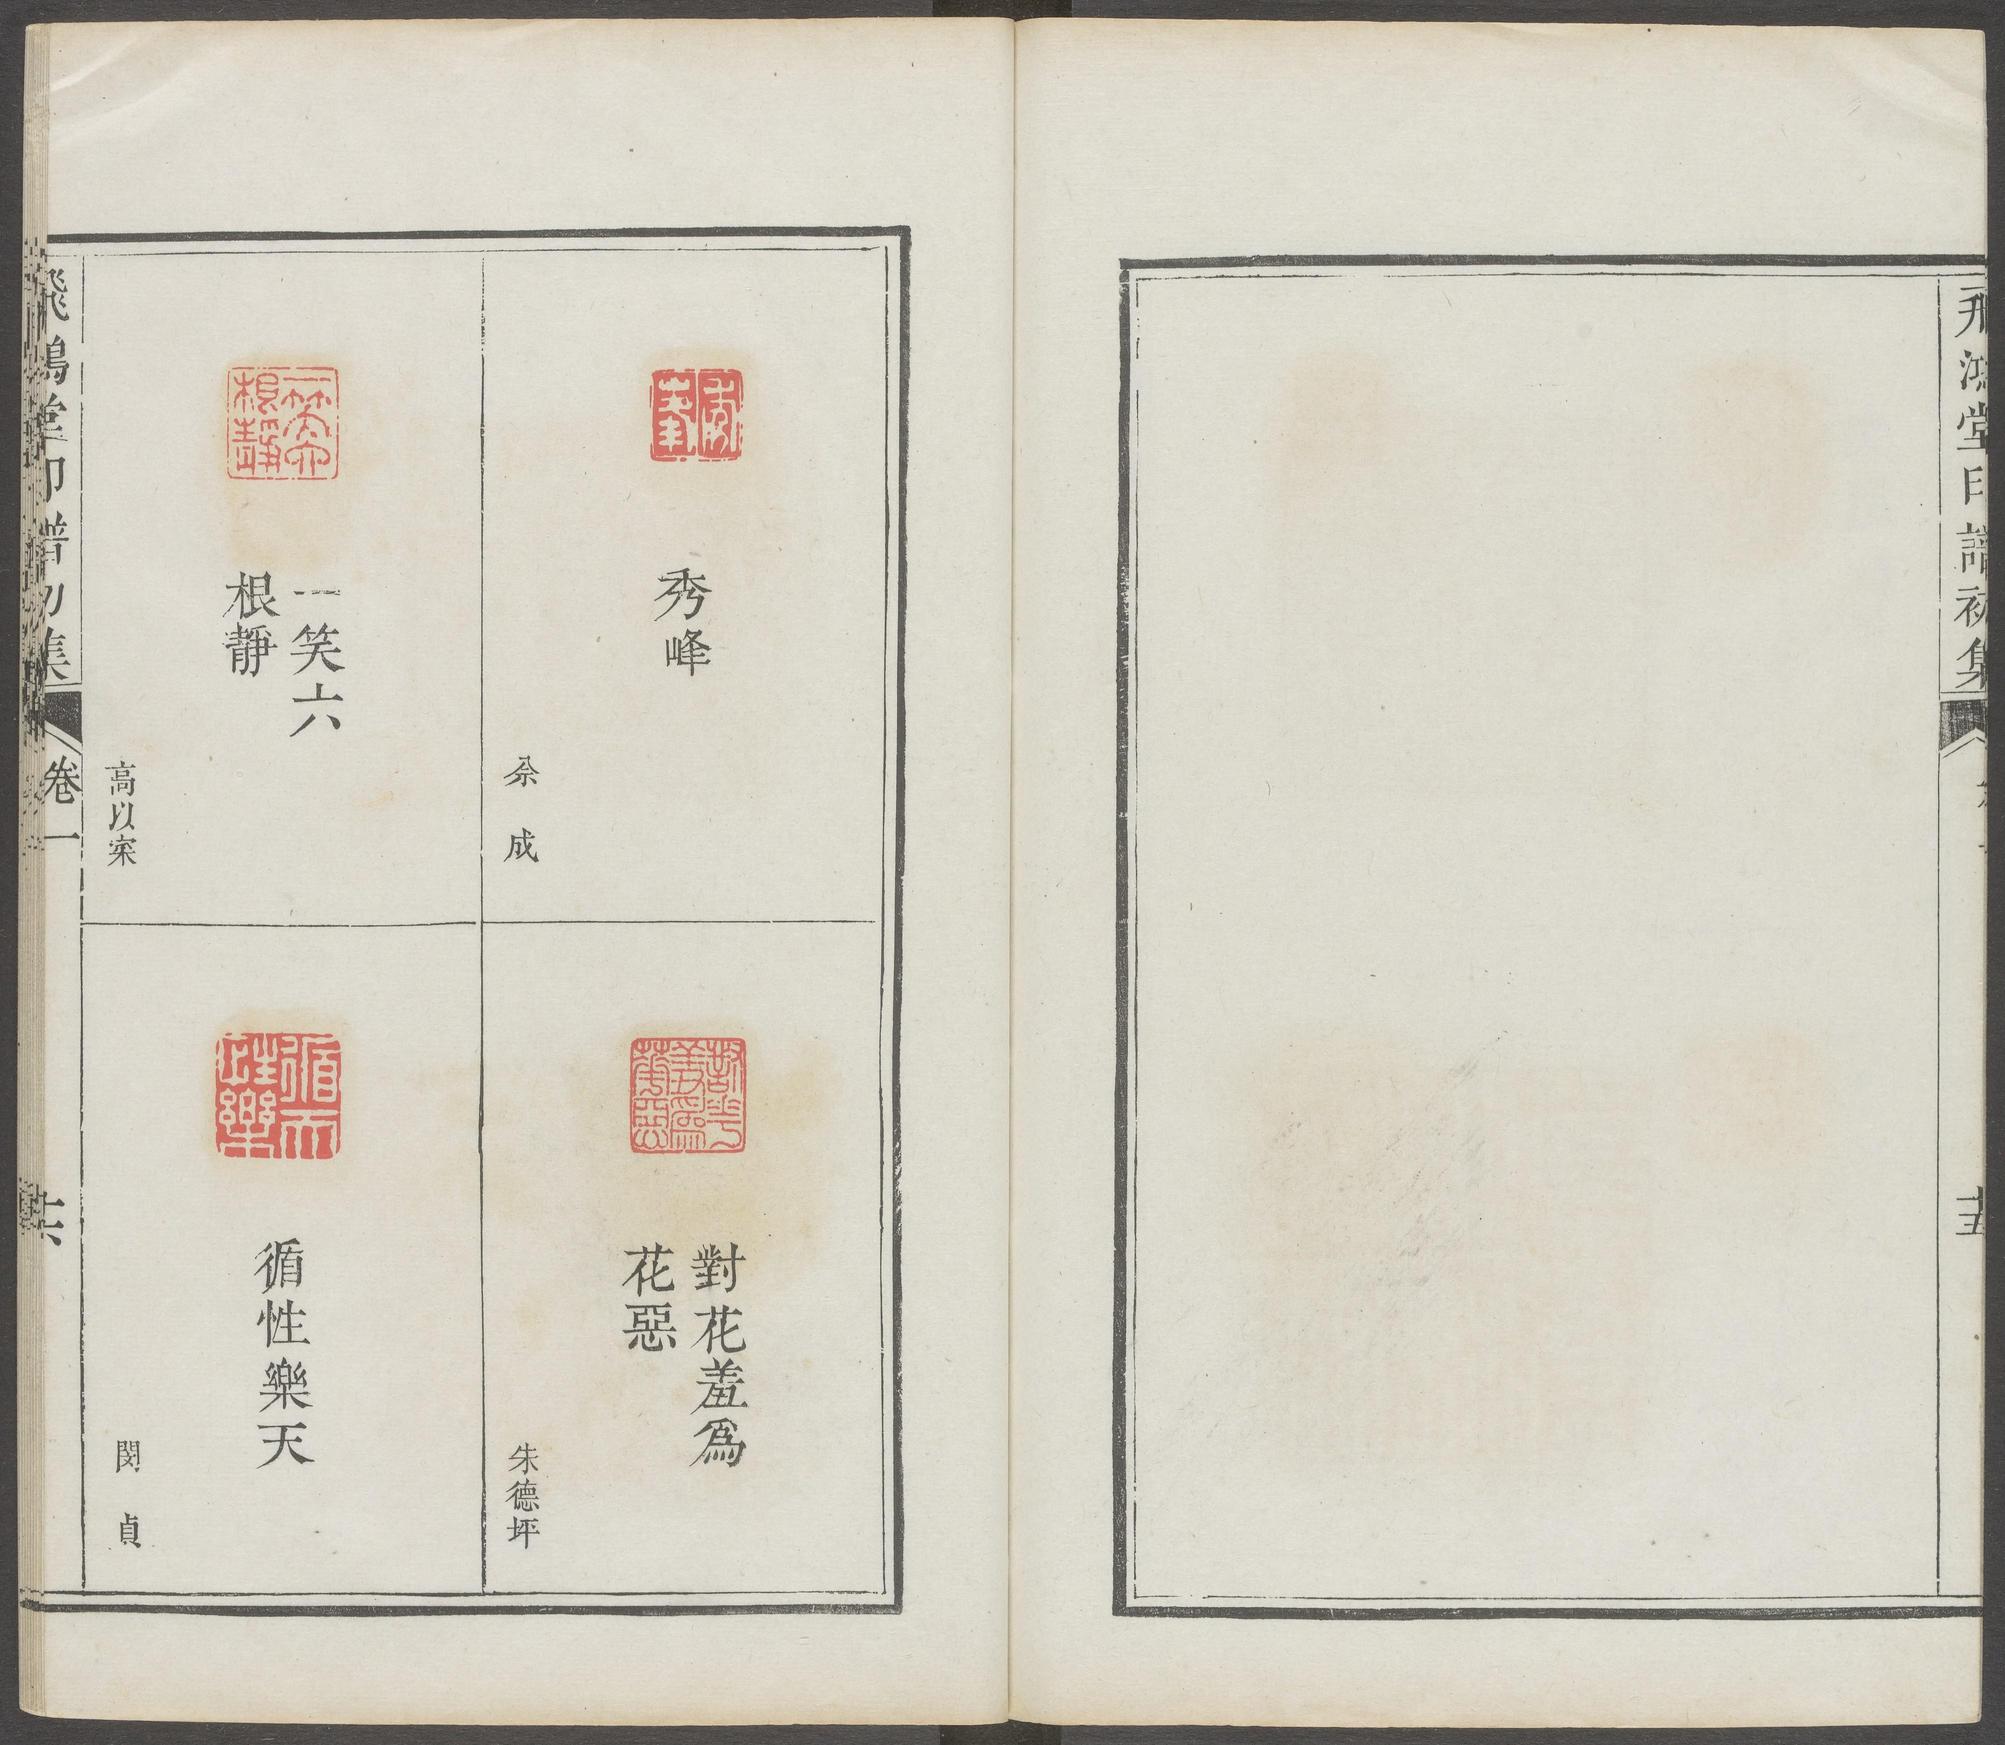 飛鴻堂印譜初集
十五
秀峰
余成
對花羞爲
花惡
朱德坪
一笑六
根靜
高以寀
循性樂天
閔貞
飛鴻堂印譜初集
卷一
十六